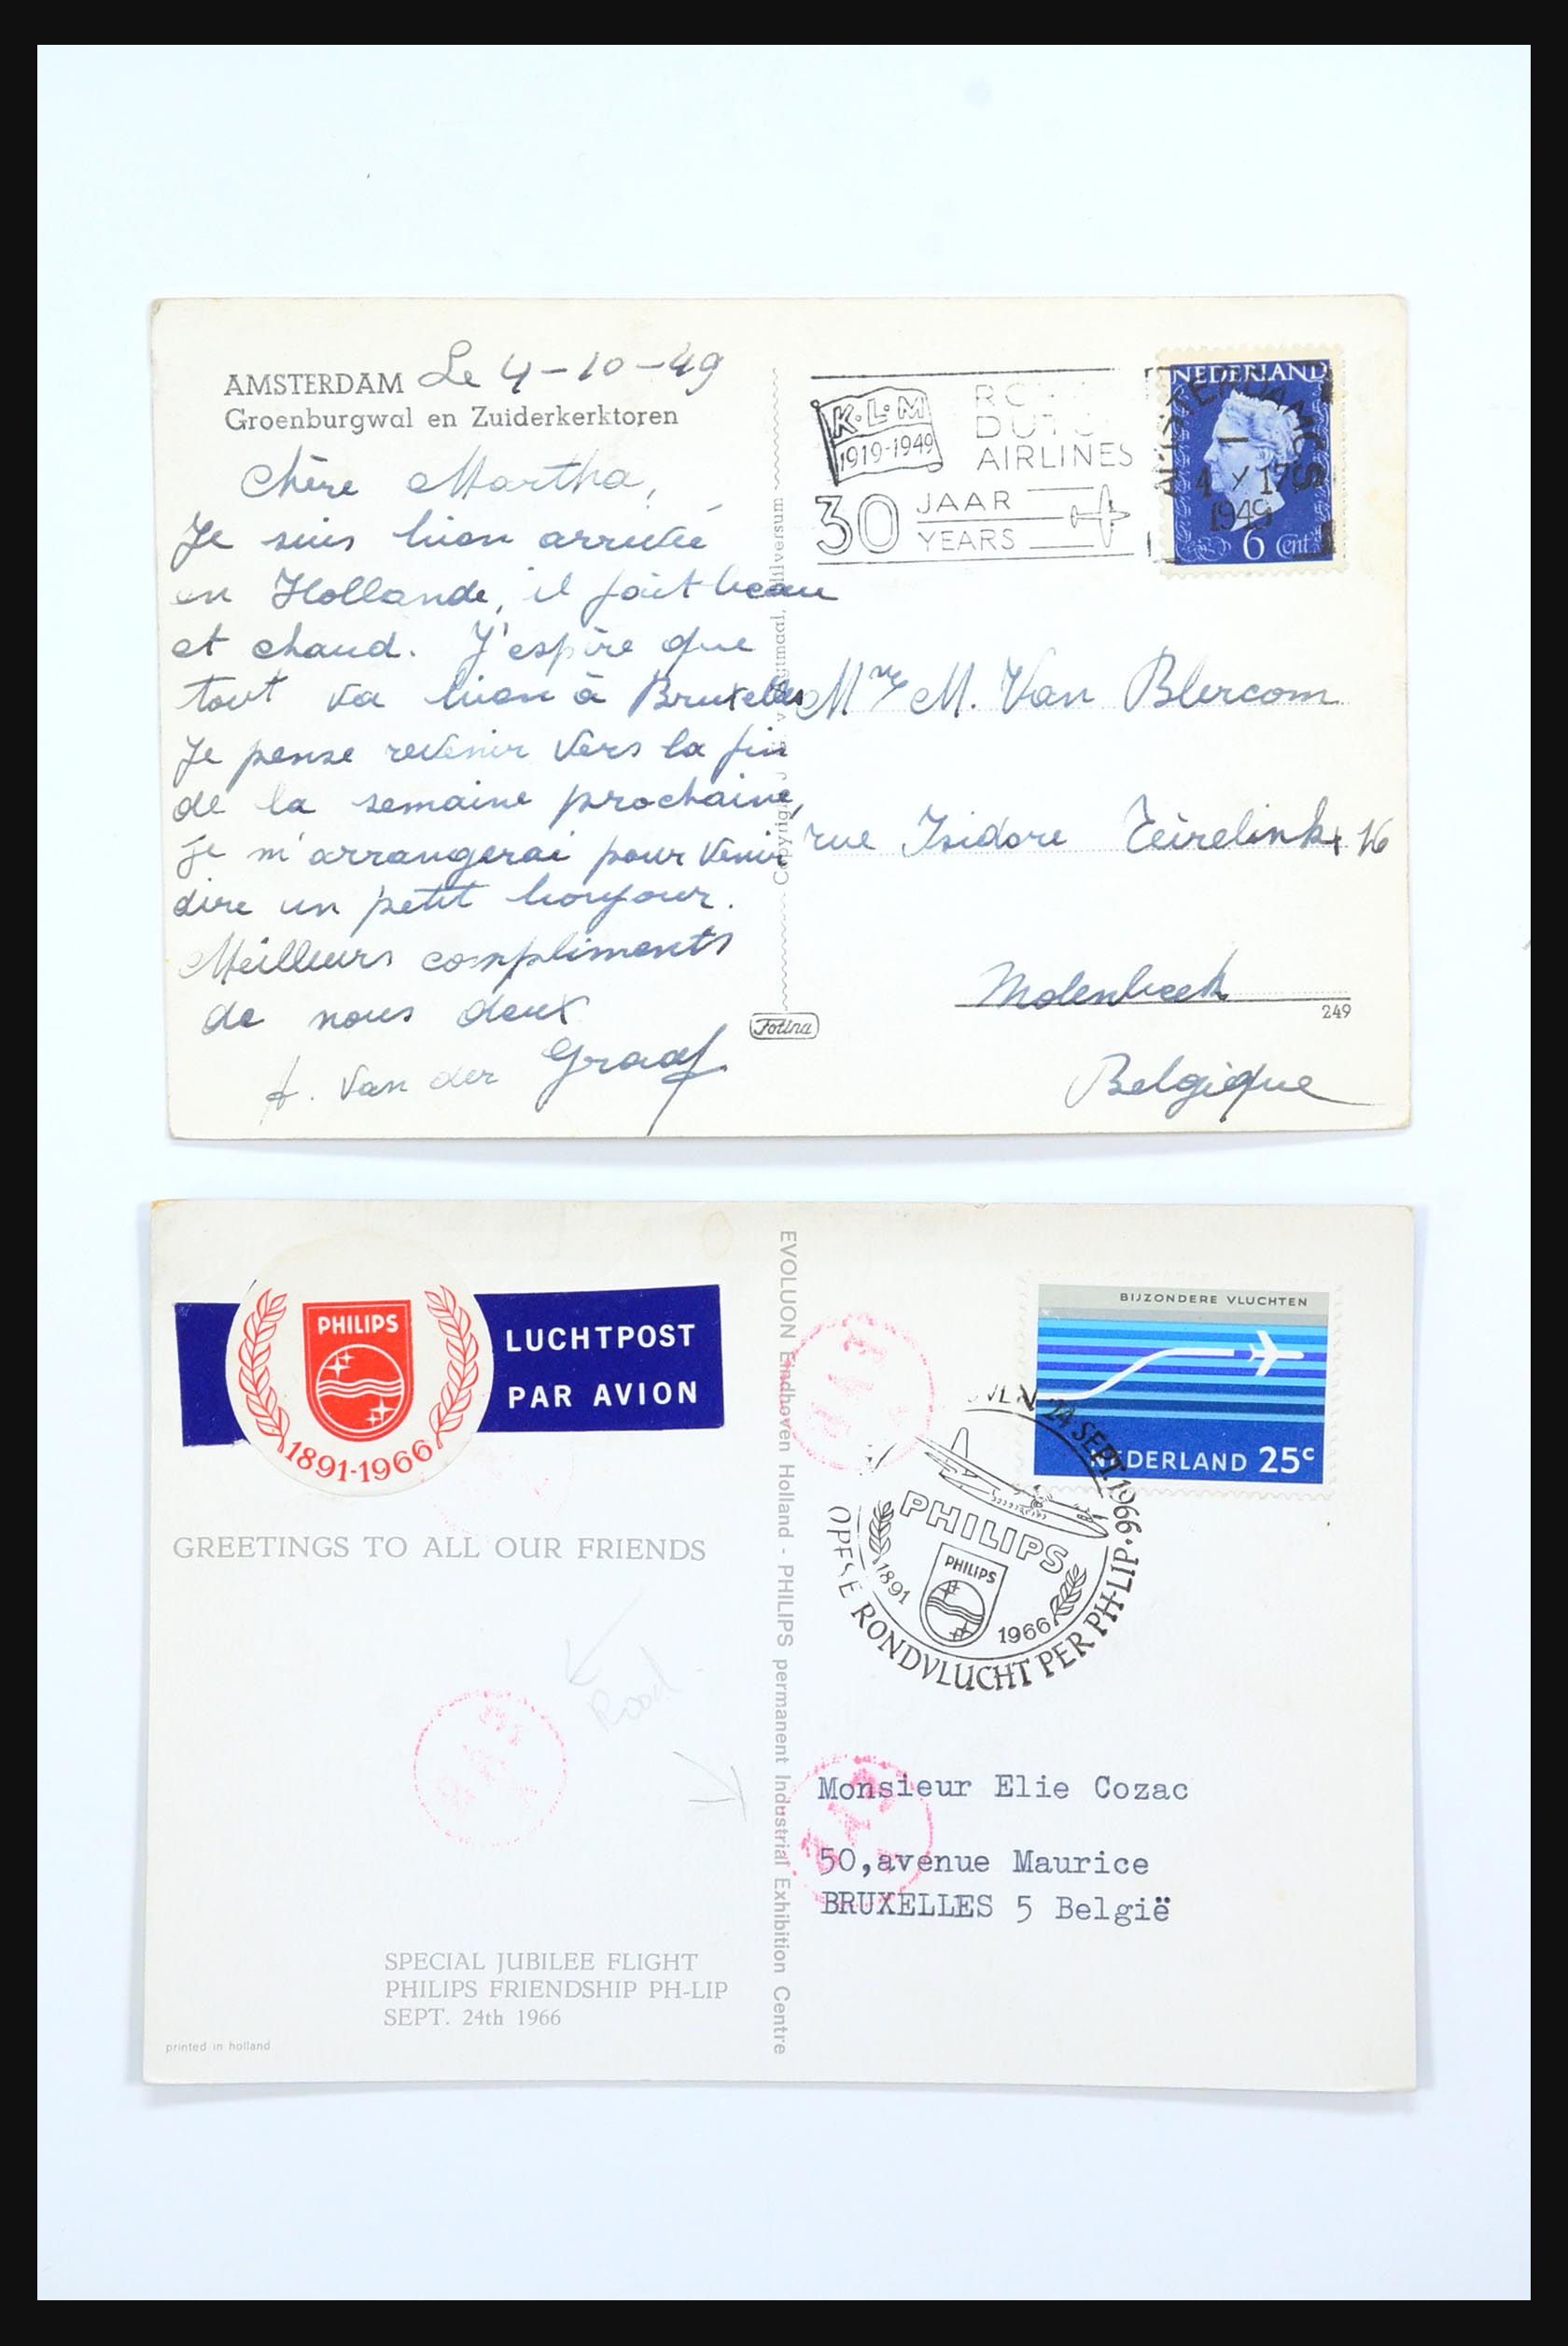 AMSTERDAM Le 4-10-49
Groenburgwal en Zuiderkerktoren
Chère Martha,
Je suis bien arrivée
en Hollande, il fait beau
et chaud. J'espère que
tout va bien à Bruxelles
Je pense revenir vers la fin
de la semaine prochaine,
je m'arrangerai pour venir
dire un petit bonjour.
Meilleurs compliments
de nous deux
A. Van der Graaf
Fotina
K·L·M
1919-1949
AIRLINES
30 JAAR
YEARS
NEDERLAND
4 X 17
1949
6 Cent
Mme M. Van Blercom
rue Isidore Teirelinkx 16
Molenbeek
249
Belgique
PHILIPS
1891-1966
LUCHTPOST
PAR AVION
GREETINGS TO ALL OUR FRIENDS
Rood
SPECIAL JUBILEE FLIGHT
PHILIPS FRIENDSHIP PH-LIP
SEPT. 24th 1966
printed in holland
EVOLUON Eindhoven Holland - PHILIPS permanent Industrial Exhibition Centre
BIJZONDERE VLUCHTEN
NEDERLAND 25c
24 SEPT. 1966
PHILIPS
PHILIPS
1891
1966
RONDVLUCHT PER PH-LIP
Monsieur Elie Cozac
50,avenue Maurice
BRUXELLES 5 België